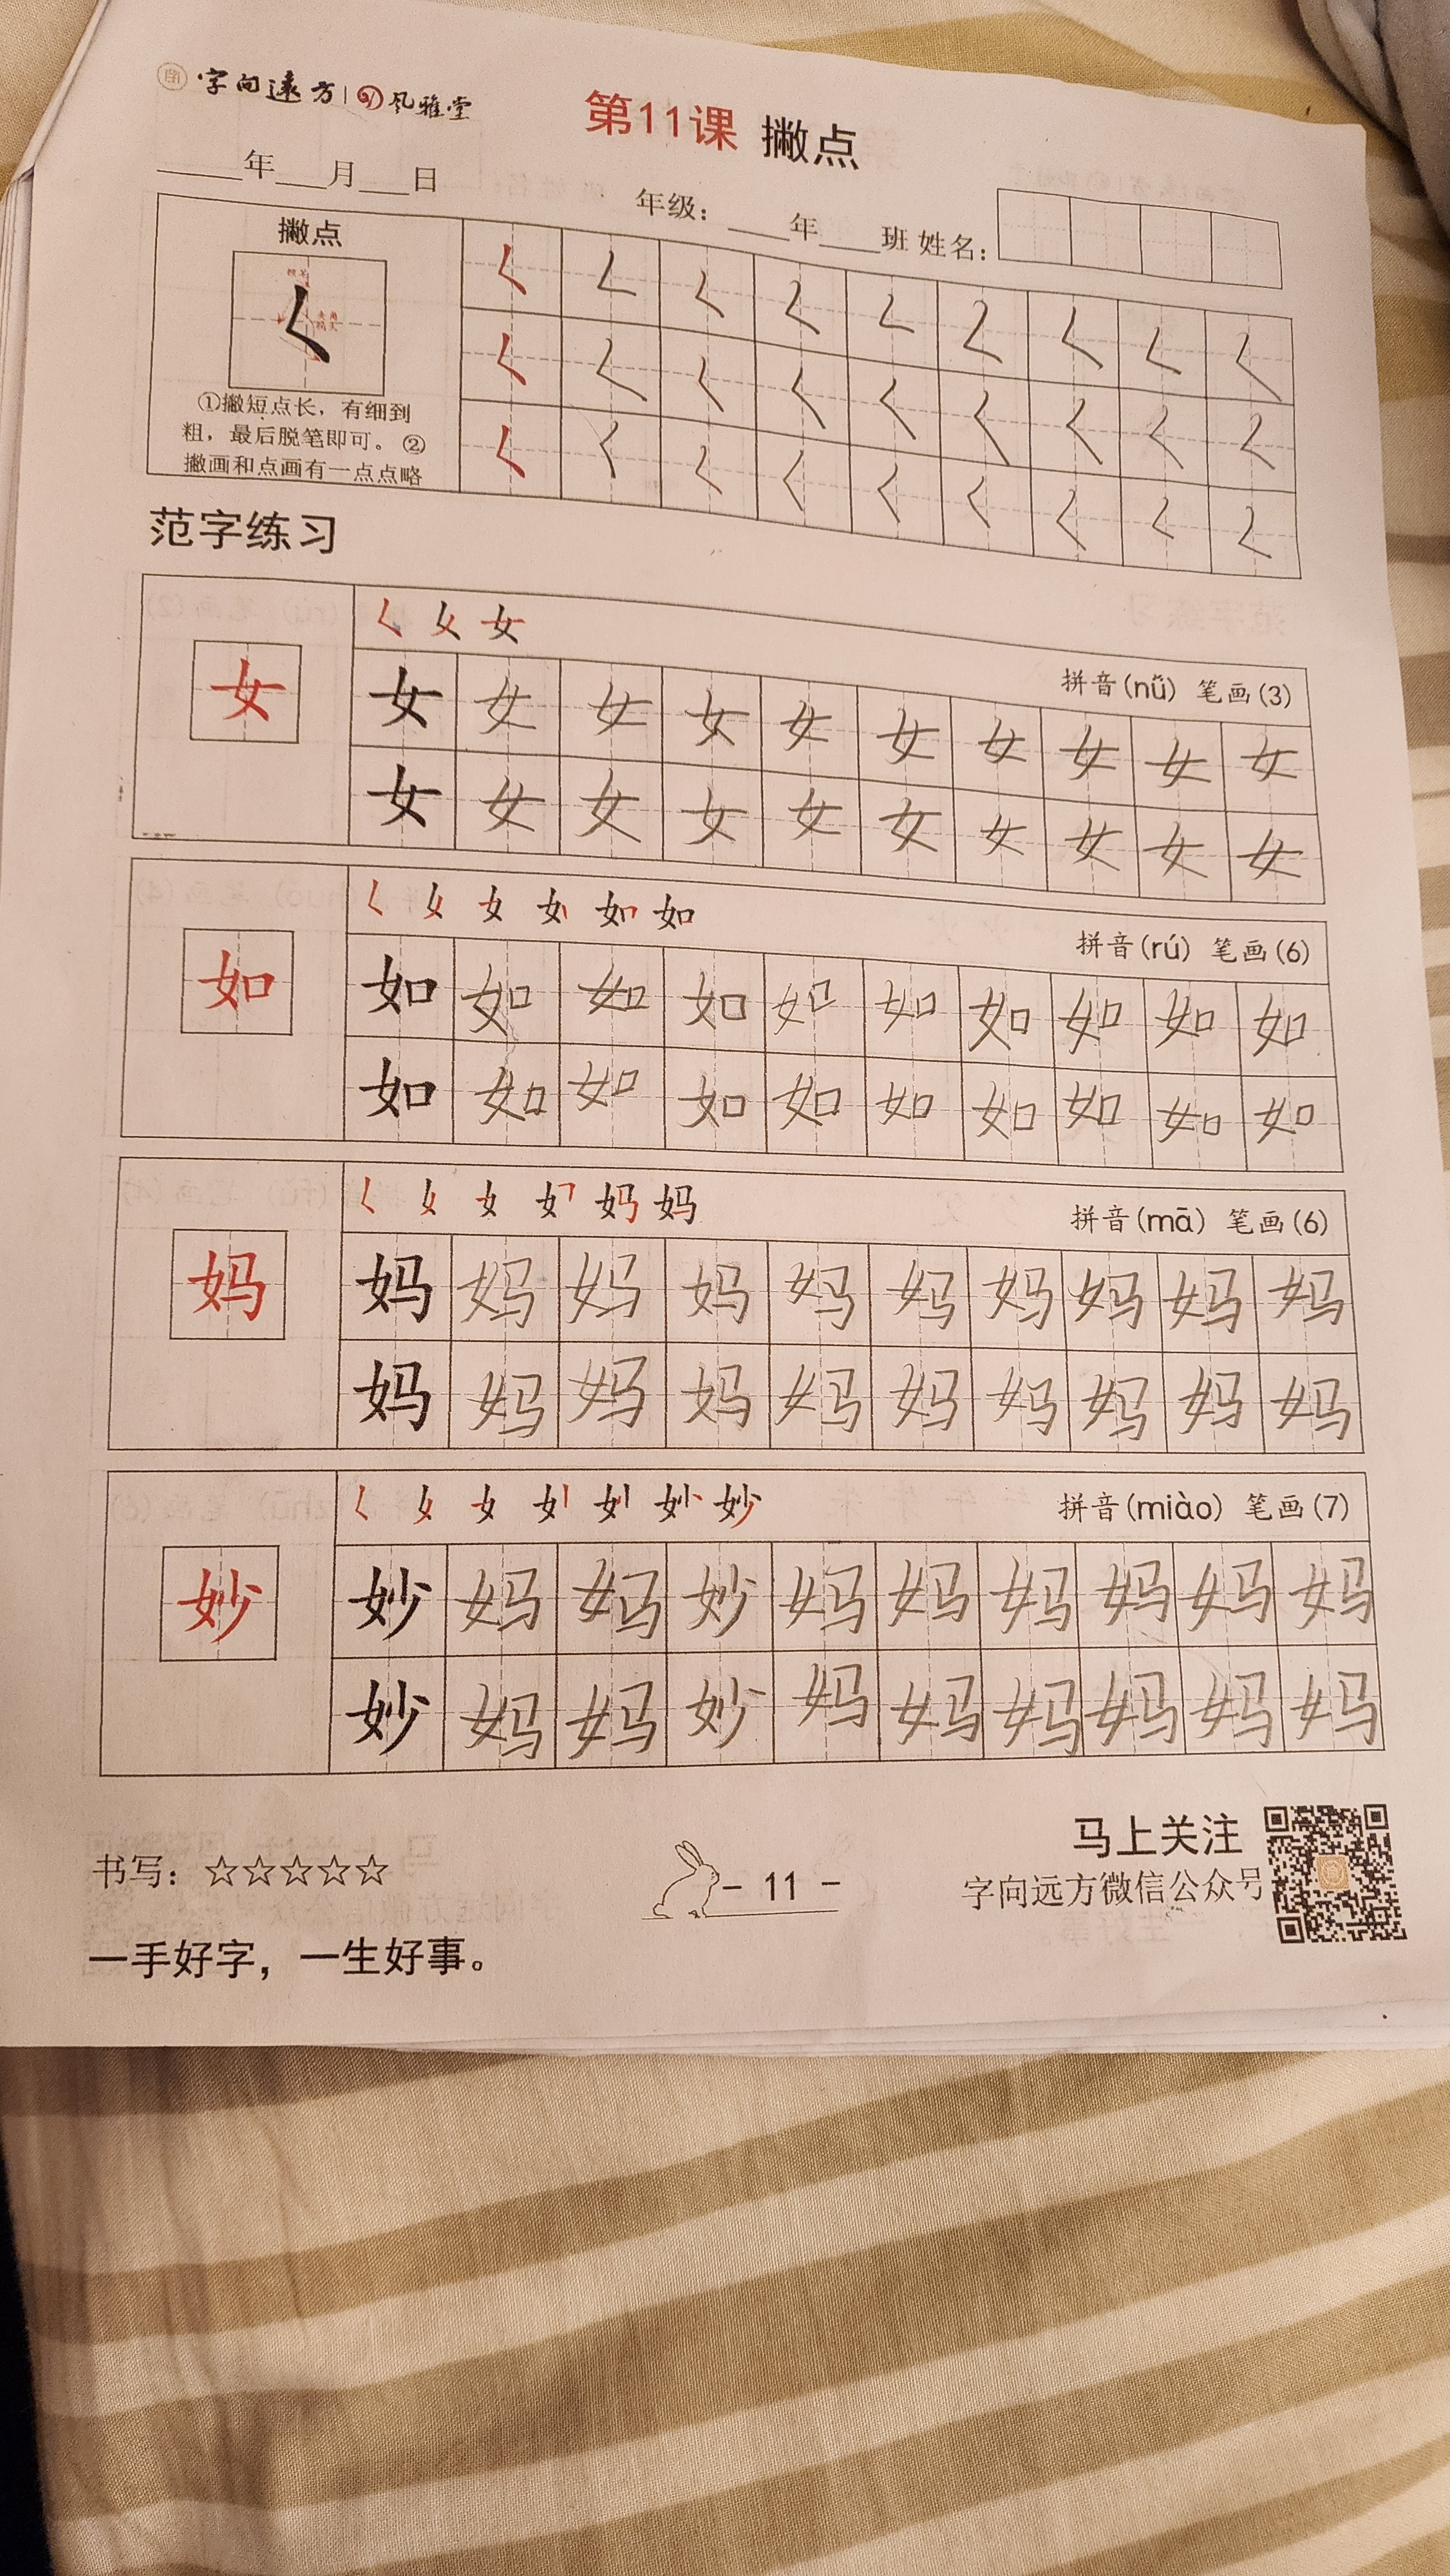 字向遠方 | 风雅堂
第11课 撇点
____年___月___日 年级：____年____班 姓名：
撇点
①撇短点长，有细到
粗，最后脱笔即可。②
撇画和点画有一点点略
范字练习
拼音(nǚ) 笔画(3)
女 女 女 女 女 女 女 女 女 女 女
女 女 女 女 女 女 女 女 女 女
拼音(rú) 笔画(6)
如 如 如 如 如 如 如 如 如 如 如
如 如 如 如 如 如 如 如 如 如
拼音(mā) 笔画(6)
妈 妈 妈 妈 妈 妈 妈 妈 妈 妈 妈
妈 妈 妈 妈 妈 妈 妈 妈 妈 妈
拼音(miào) 笔画(7)
妙 妙 妈 妈 妙 妈 妈 妈 妈 妈 妈
妙 妈 妈 妙 妈 妈 妈 妈 妈 妈
书写：☆☆☆☆☆
- 11 -
马上关注
字向远方微信公众号
一手好字，一生好事。